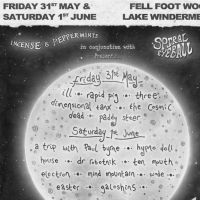 FRIDAY 31ST MAY &
SATURDAY 1ST JUNE
FELL FOOT WO
LAKE WINDERME
INCENSE & PEPPERMINTS
in conjunction with
SPREAD
EYEBALL
Present...
Friday 31st May
ill · rapid pig · three
dimensional tanx · the cosmic
dead · paddy steer
Saturday 1st June
a trip with Paul Byrne · hypno doll
house · dr robotnik · ten mouth
electron · mind mountain · wode
easter · galoshins